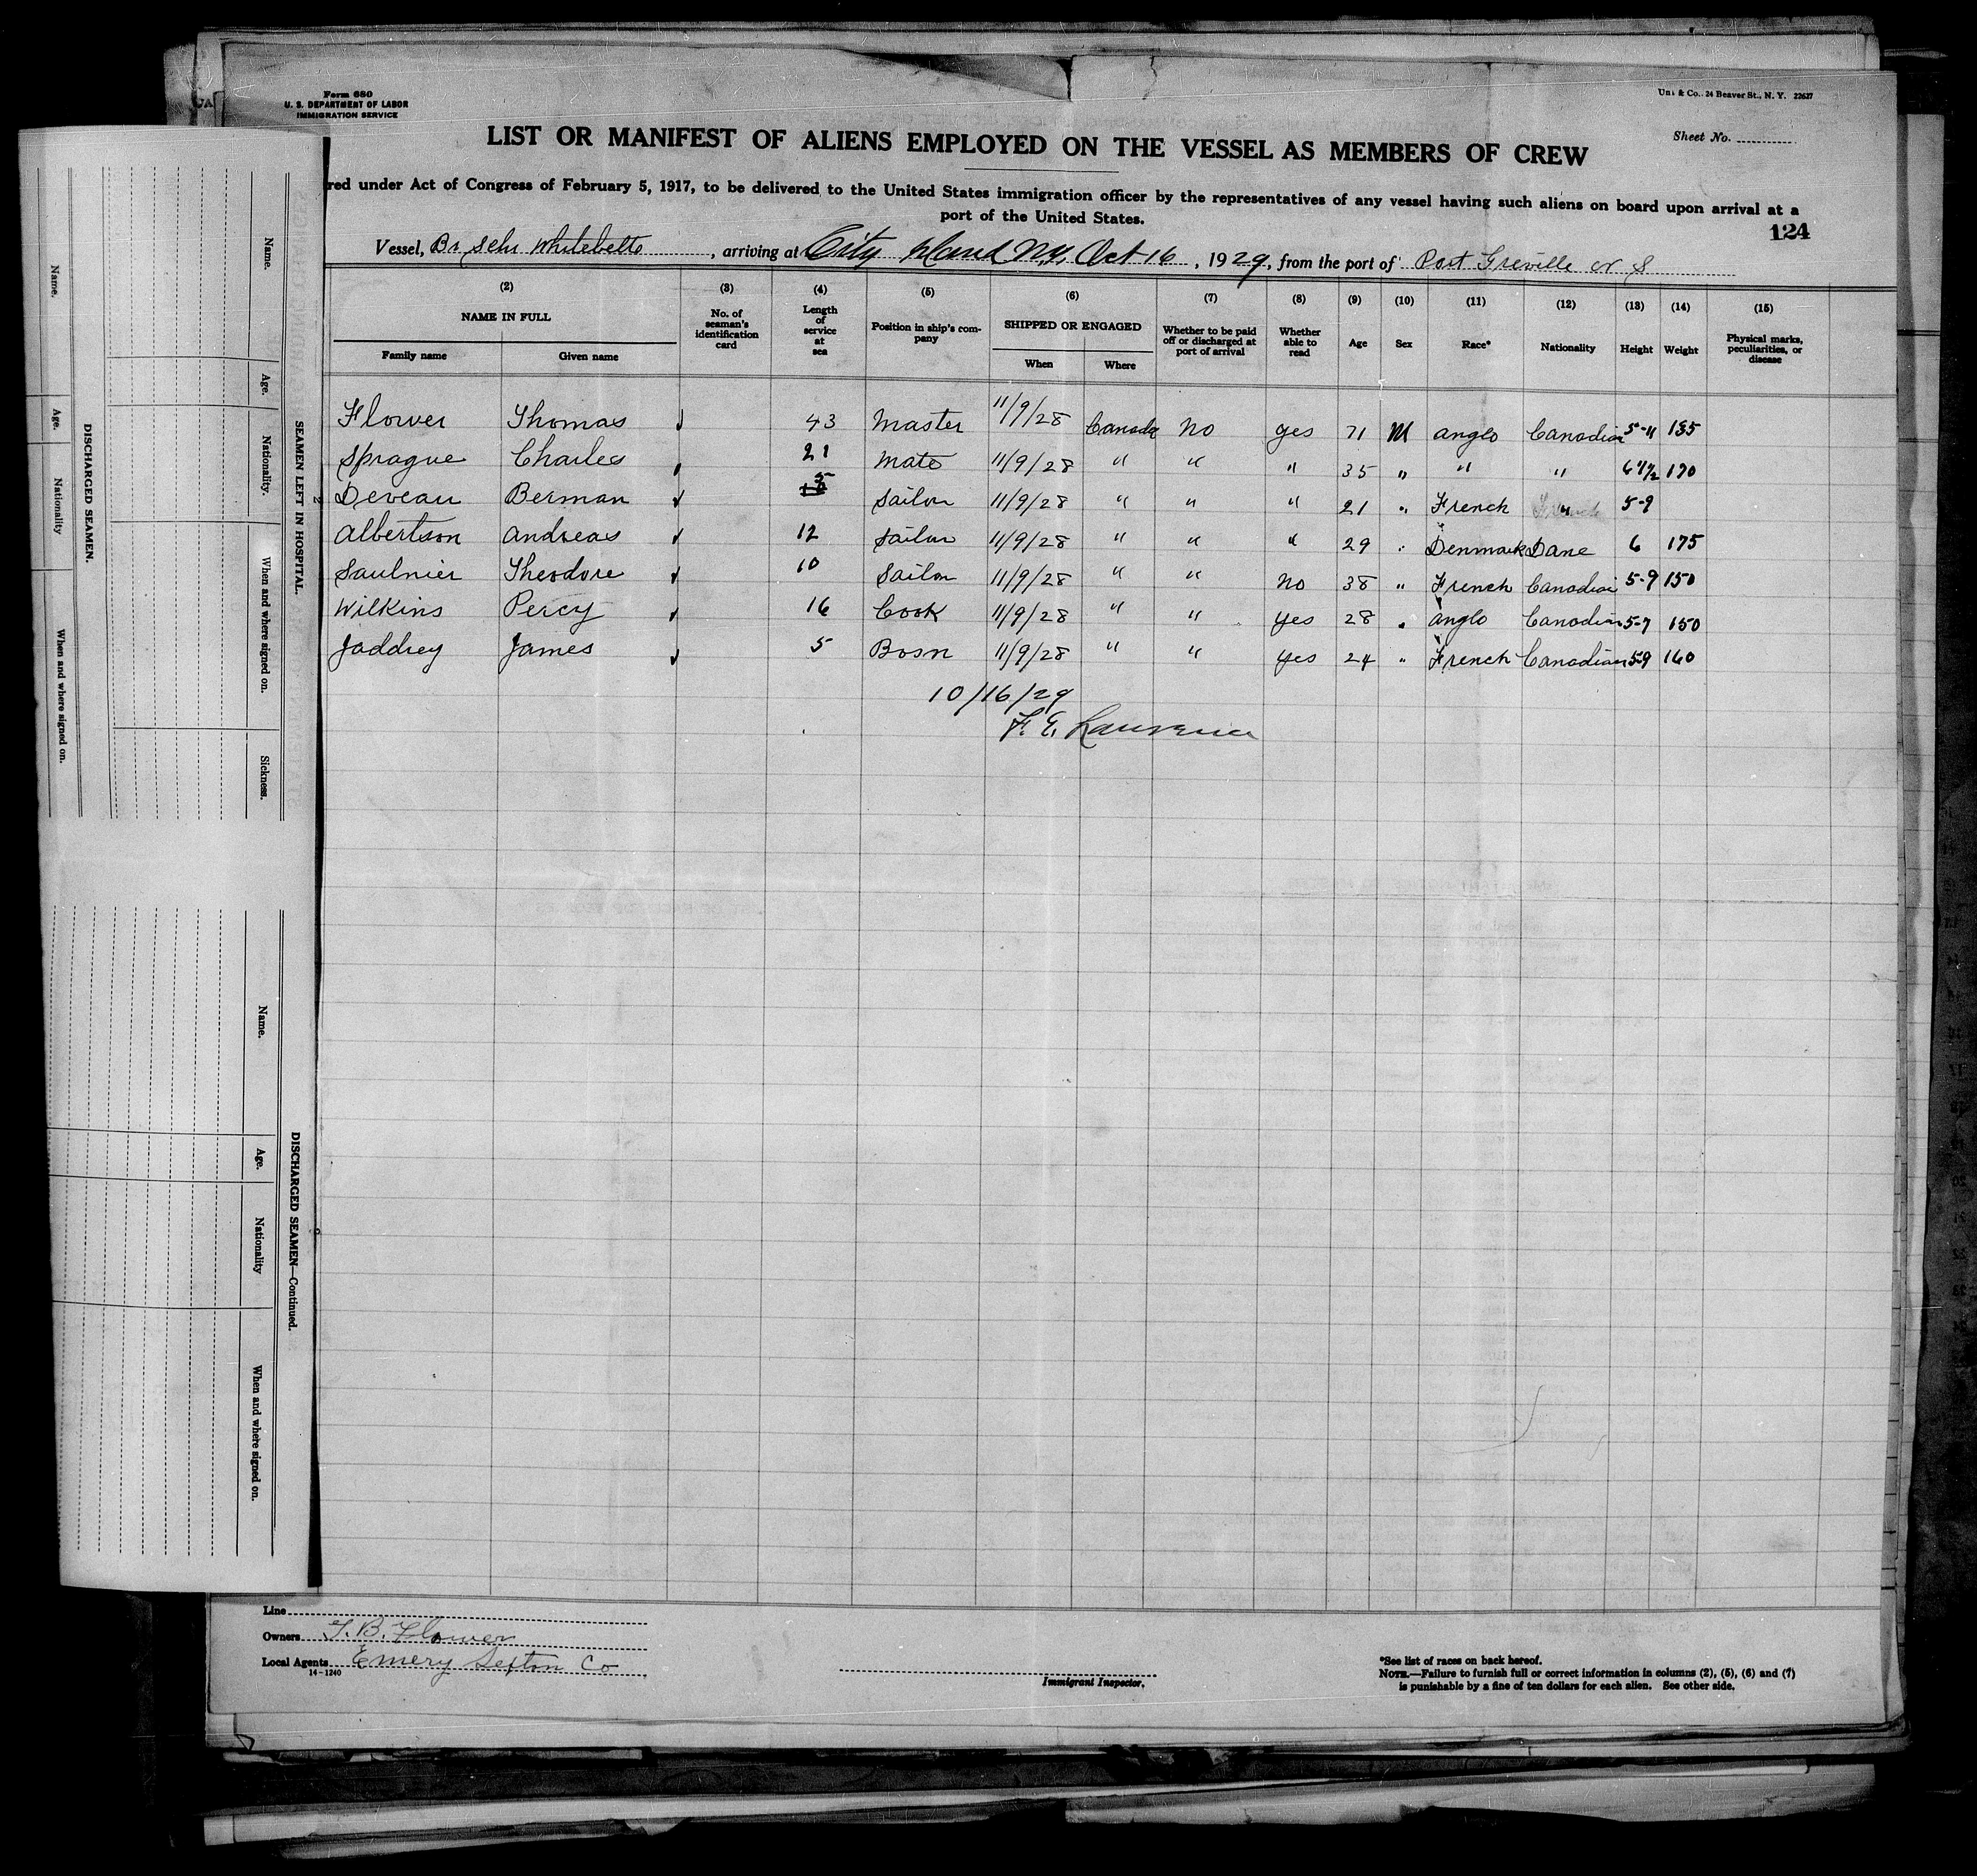 Form 680
U. S. DEPARTMENT OF LABOR
IMMIGRATION SERVICE
& Co., 24 Beaver St., N. Y. 22627
Sheet No.
LIST OR MANIFEST OF ALIENS EMPLOYED ON THE VESSEL AS MEMBERS OF CREW
red under Act of Congress of February 5, 1917, to be delivered to the United States immigration officer by the representatives of any vessel having such aliens on board upon arrival at a
port of the United States.
124
Vessel, Br Schr Whitebelle, arriving at City Island N.Y. Oct 16, 1929, from the port of Port Greville N S
(2) (3) (4) (5) (6) (7) (8) (9) (10) (11) (12) (13) (14) (15)
NAME IN FULL
Family name Given name
No. of seaman's identification card
Length of service at sea
Position in ship's company
SHIPPED OR ENGAGED
When Where
Whether to be paid off or discharged at port of arrival
Whether able to read
Age Sex Race* Nationality Height Weight
Physical marks, peculiarities, or disease
Flower Thomas 43 Master 11/9/28 Canada No yes 71 M anglo Canadian 5-11 135
Sprague Charles 21 Mate 11/9/28 " " " 35 " " " 6 1/2 170
Deveau Berman 5 Sailor 11/9/28 " " " 21 " French " 5-9
Albertson Andreas 12 Sailor 11/9/28 " " " 29 " Denmark Dane 6 175
Saulnier Theodore 10 Sailor 11/9/28 " " No 38 " French Canadian 5-9 150
Wilkins Percy 16 Cook 11/9/28 " " yes 28 " anglo Canadian 5-7 150
Jaddrey James 5 Bosn 11/9/28 " " yes 24 " French Canadian 5-9 160
10/16/29
F. E. Lawrence
Line
Owners T. B. Flower
Local Agents Emery Sexton Co
14-1240
Immigrant Inspector.
*See list of races on back hereof.
NOTE.—Failure to furnish full or correct information in columns (2), (5), (6) and (7)
is punishable by a fine of ten dollars for each alien. See other side.
SEAMEN LEFT IN HOSPITAL.
Name. Age. Nationality. When and where signed on. Sickness.
DISCHARGED SEAMEN.
Name. Age. Nationality When and where signed on.
DISCHARGED SEAMEN—Continued.
Name. Age. Nationality When and where signed on.